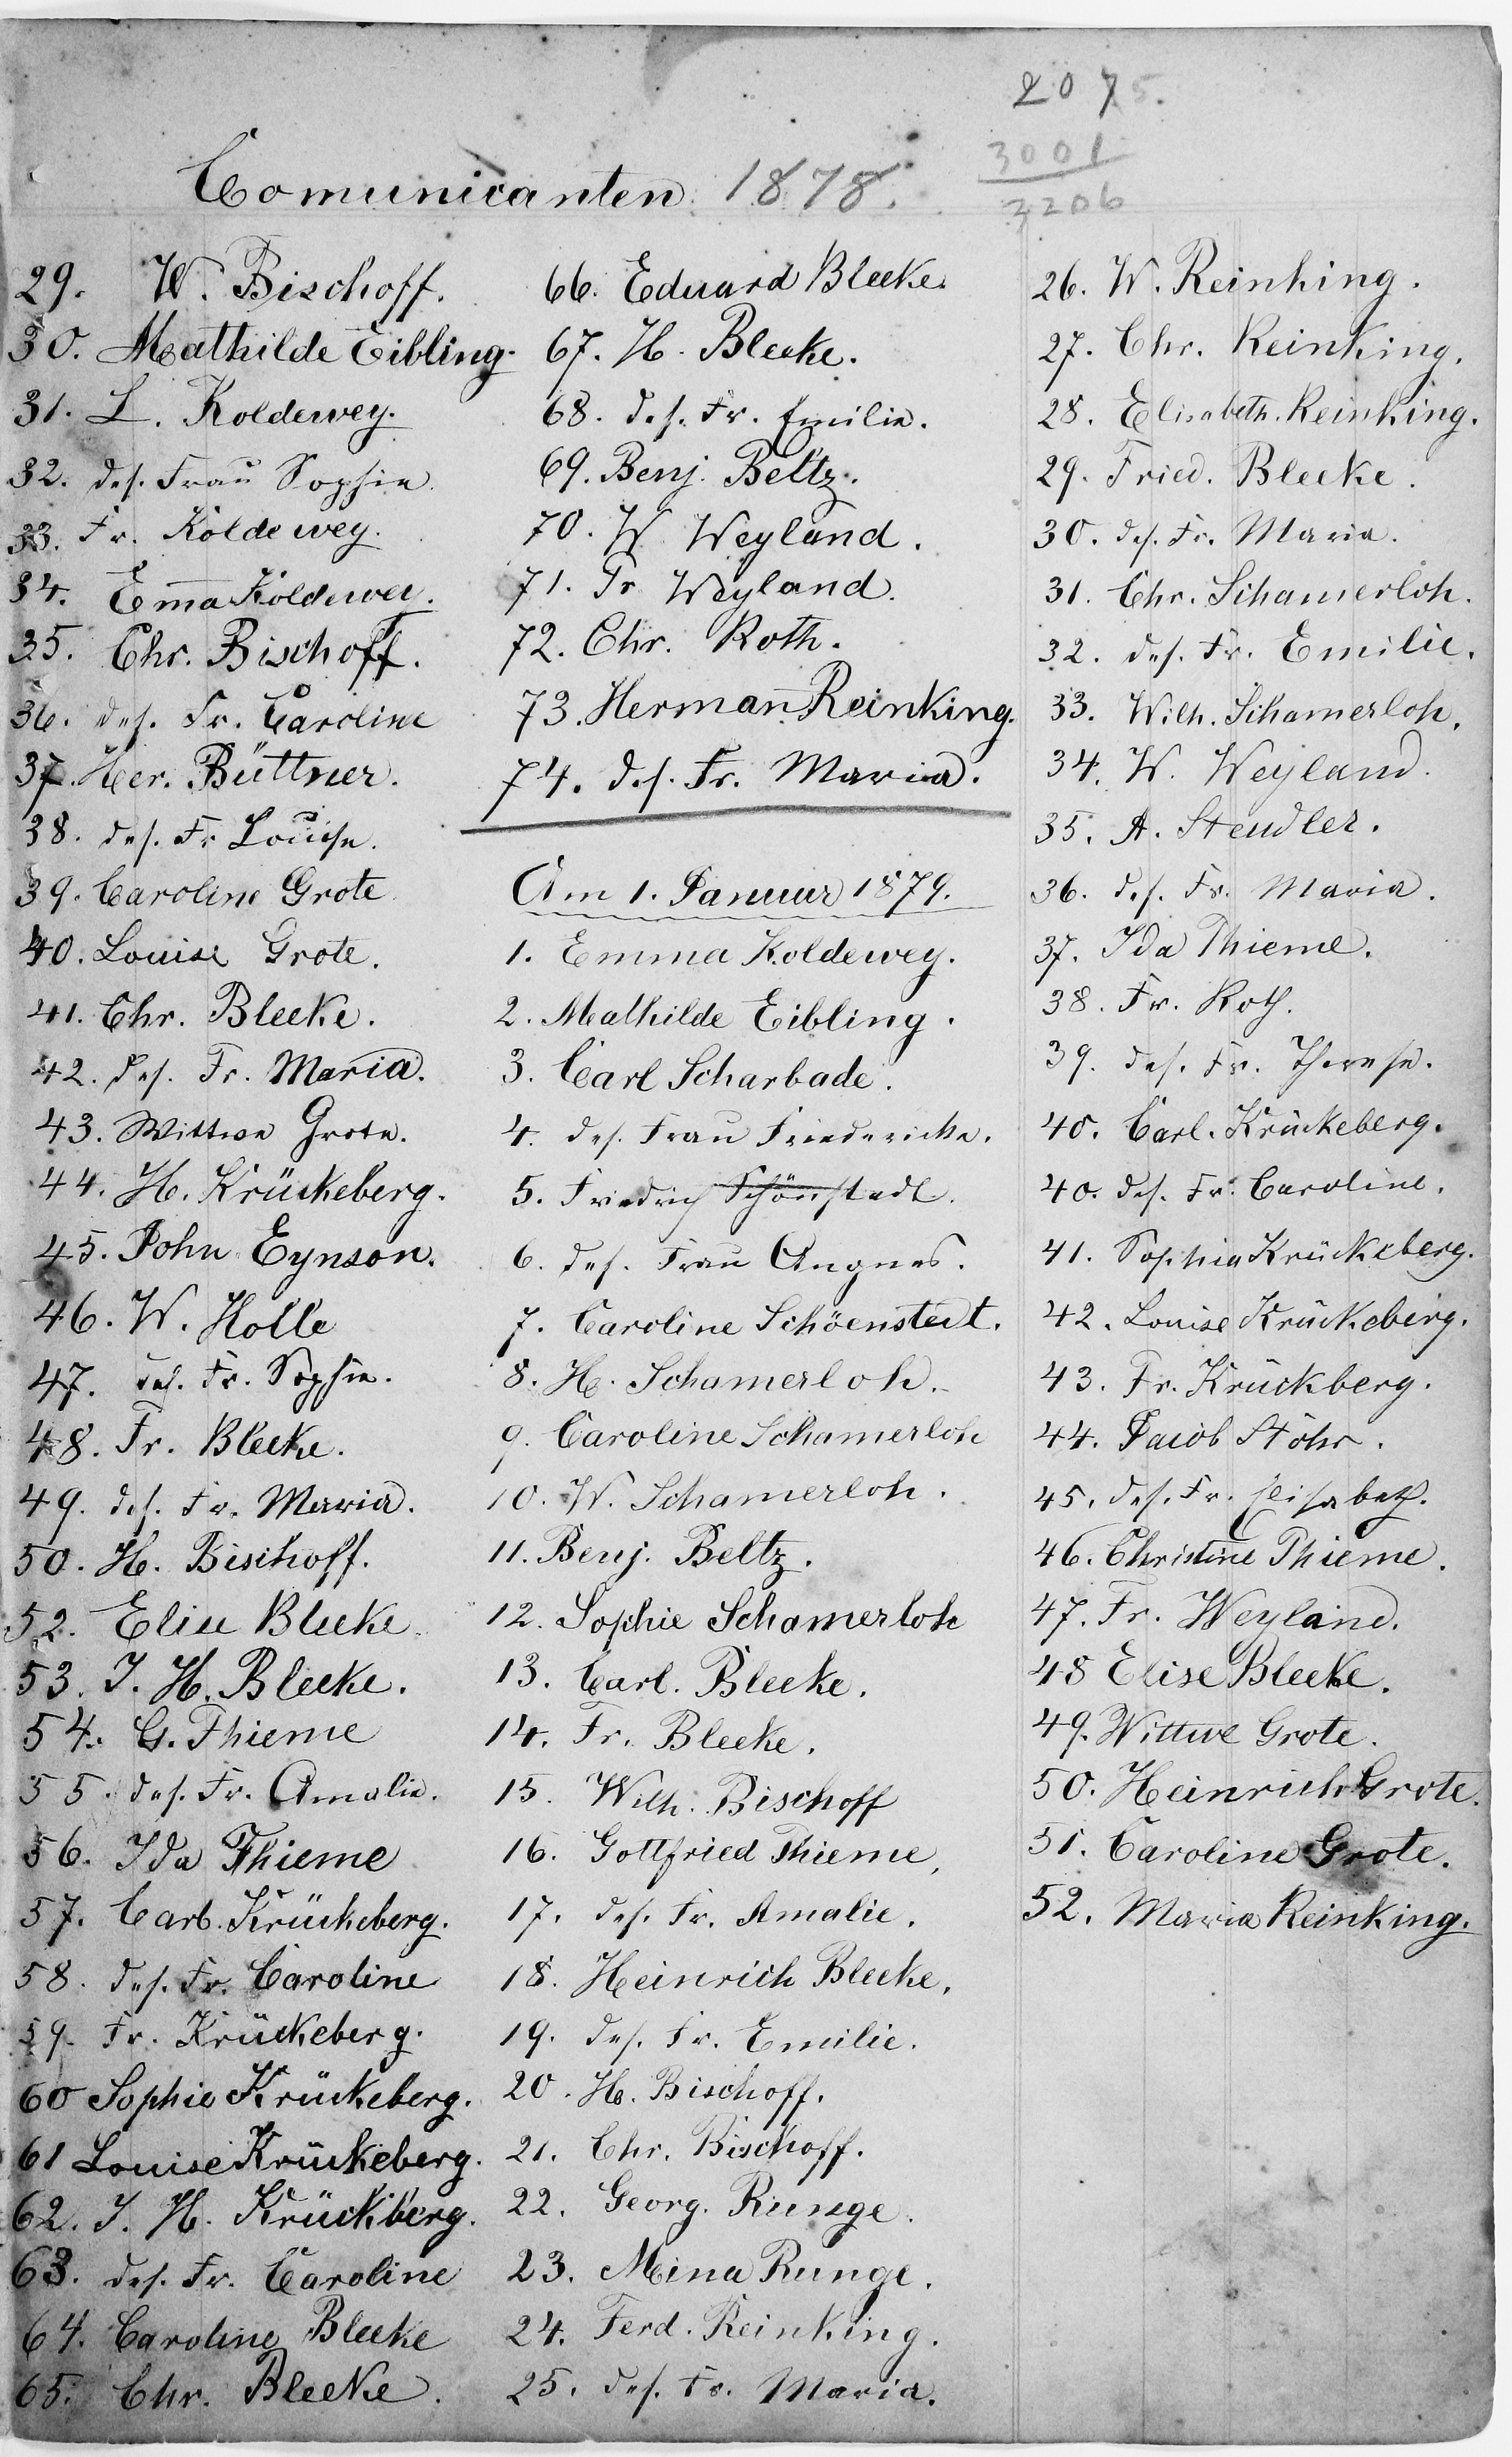 2075.
3001
3206
Comunicanten 1878.
29. W. Bischoff.
30. Mathilde Eibling.
31. L. Koldewey.
32. des. Frau Sophie.
33. Fr. Koldewey.
34. Em̅a Koldewey.
35. Chr. Bischoff.
36. des. Fr. Caroline
37. Her. Büttner.
38. des. Fr Louise.
39. Caroline Grote
40. Louise Grote.
41. Chr. Bleeke.
42. des. Fr. Maria.
43. Wittwe Grote.
44. H. Krückeberg.
45. John Eynson.
46. W. Holle
47. des. Fr. Sophie.
48. Fr. Bleeke.
49. des. Fr. Maria.
50. H. Bischoff.
52. Elise Bleeke.
53. J. H. Bleeke.
54. G. Thieme
55. des. Fr. Amalie.
56. Ida Thieme
57. Carl. Krückeberg.
58. des. Fr. Caroline
59. Fr. Krückeberg.
60 Sophie Krückeberg.
61 Louise Krückeberg.
62. J. H. Krückberg.
63. des. Fr. Caroline
64. Caroline Bleeke
65. Chr. Bleeke.
66. Eduard Bleeke.
67. H. Bleeke.
68. des. Fr. Emilie.
69. Benj. Beltz.
70. W Weyland.
71. Fr Weyland.
72. Chr. Roth.
73. Herman̅ Reinking.
74. des. Fr. Maria.
Am 1. Januar 1879.
1. Emma Koldewey.
2. Mathilde Eibling.
3. Carl Scharbade.
4. des. Frau Friedericke.
5. Friedrich Schönstedt.
6. des. Frau Angnes.
7. Caroline Schöenstedt.
8. H. Schamerloh.
9. Caroline Schamerloh
10. W. Schamerloh.
11. Benj. Beltz.
12. Sophie Schamerloh
13. Carl. Bleeke.
14. Fr. Bleeke.
15. Wilh. Bischoff
16. Gottfried Thieme,
17. des. Fr. Amalie.
18. Heinrich Bleeke.
19. des. Fr. Emilie.
20. H. Bischoff.
21. Chr. Bischoff.
22. Georg. Runge.
23. Mina Runge.
24. Ferd. Reinking.
25. des. Fr. Maria.
26. W. Reinking.
27. Chr. Reinking.
28. Elisabeth. Reinking.
29. Fried. Bleeke.
30. des. Fr. Maria.
31. Chr. Schamerloh.
32. des. Fr. Emilie.
33. Wilh. Schamerloh.
34. W. Weyland.
35. A. Stendler.
36. des. Fr. Maria.
37. Ida Thieme.
38. Fr. Roth.
39. des. Fr. Therese.
40. Carl. Krückeberg.
40. des. Fr. Caroline.
41. Sophia Krückeberg.
42. Louise Krückeberg.
43. Fr. Krückberg.
44. Jacob Stöhr.
45. des. Fr. Elisabeth.
46. Christine Thieme.
47. Fr. Weyland.
48 Elise Bleeke.
49. Wittwe Grote.
50. Heinrich Grote.
51. Caroline Grote.
52. Maria Reinking.